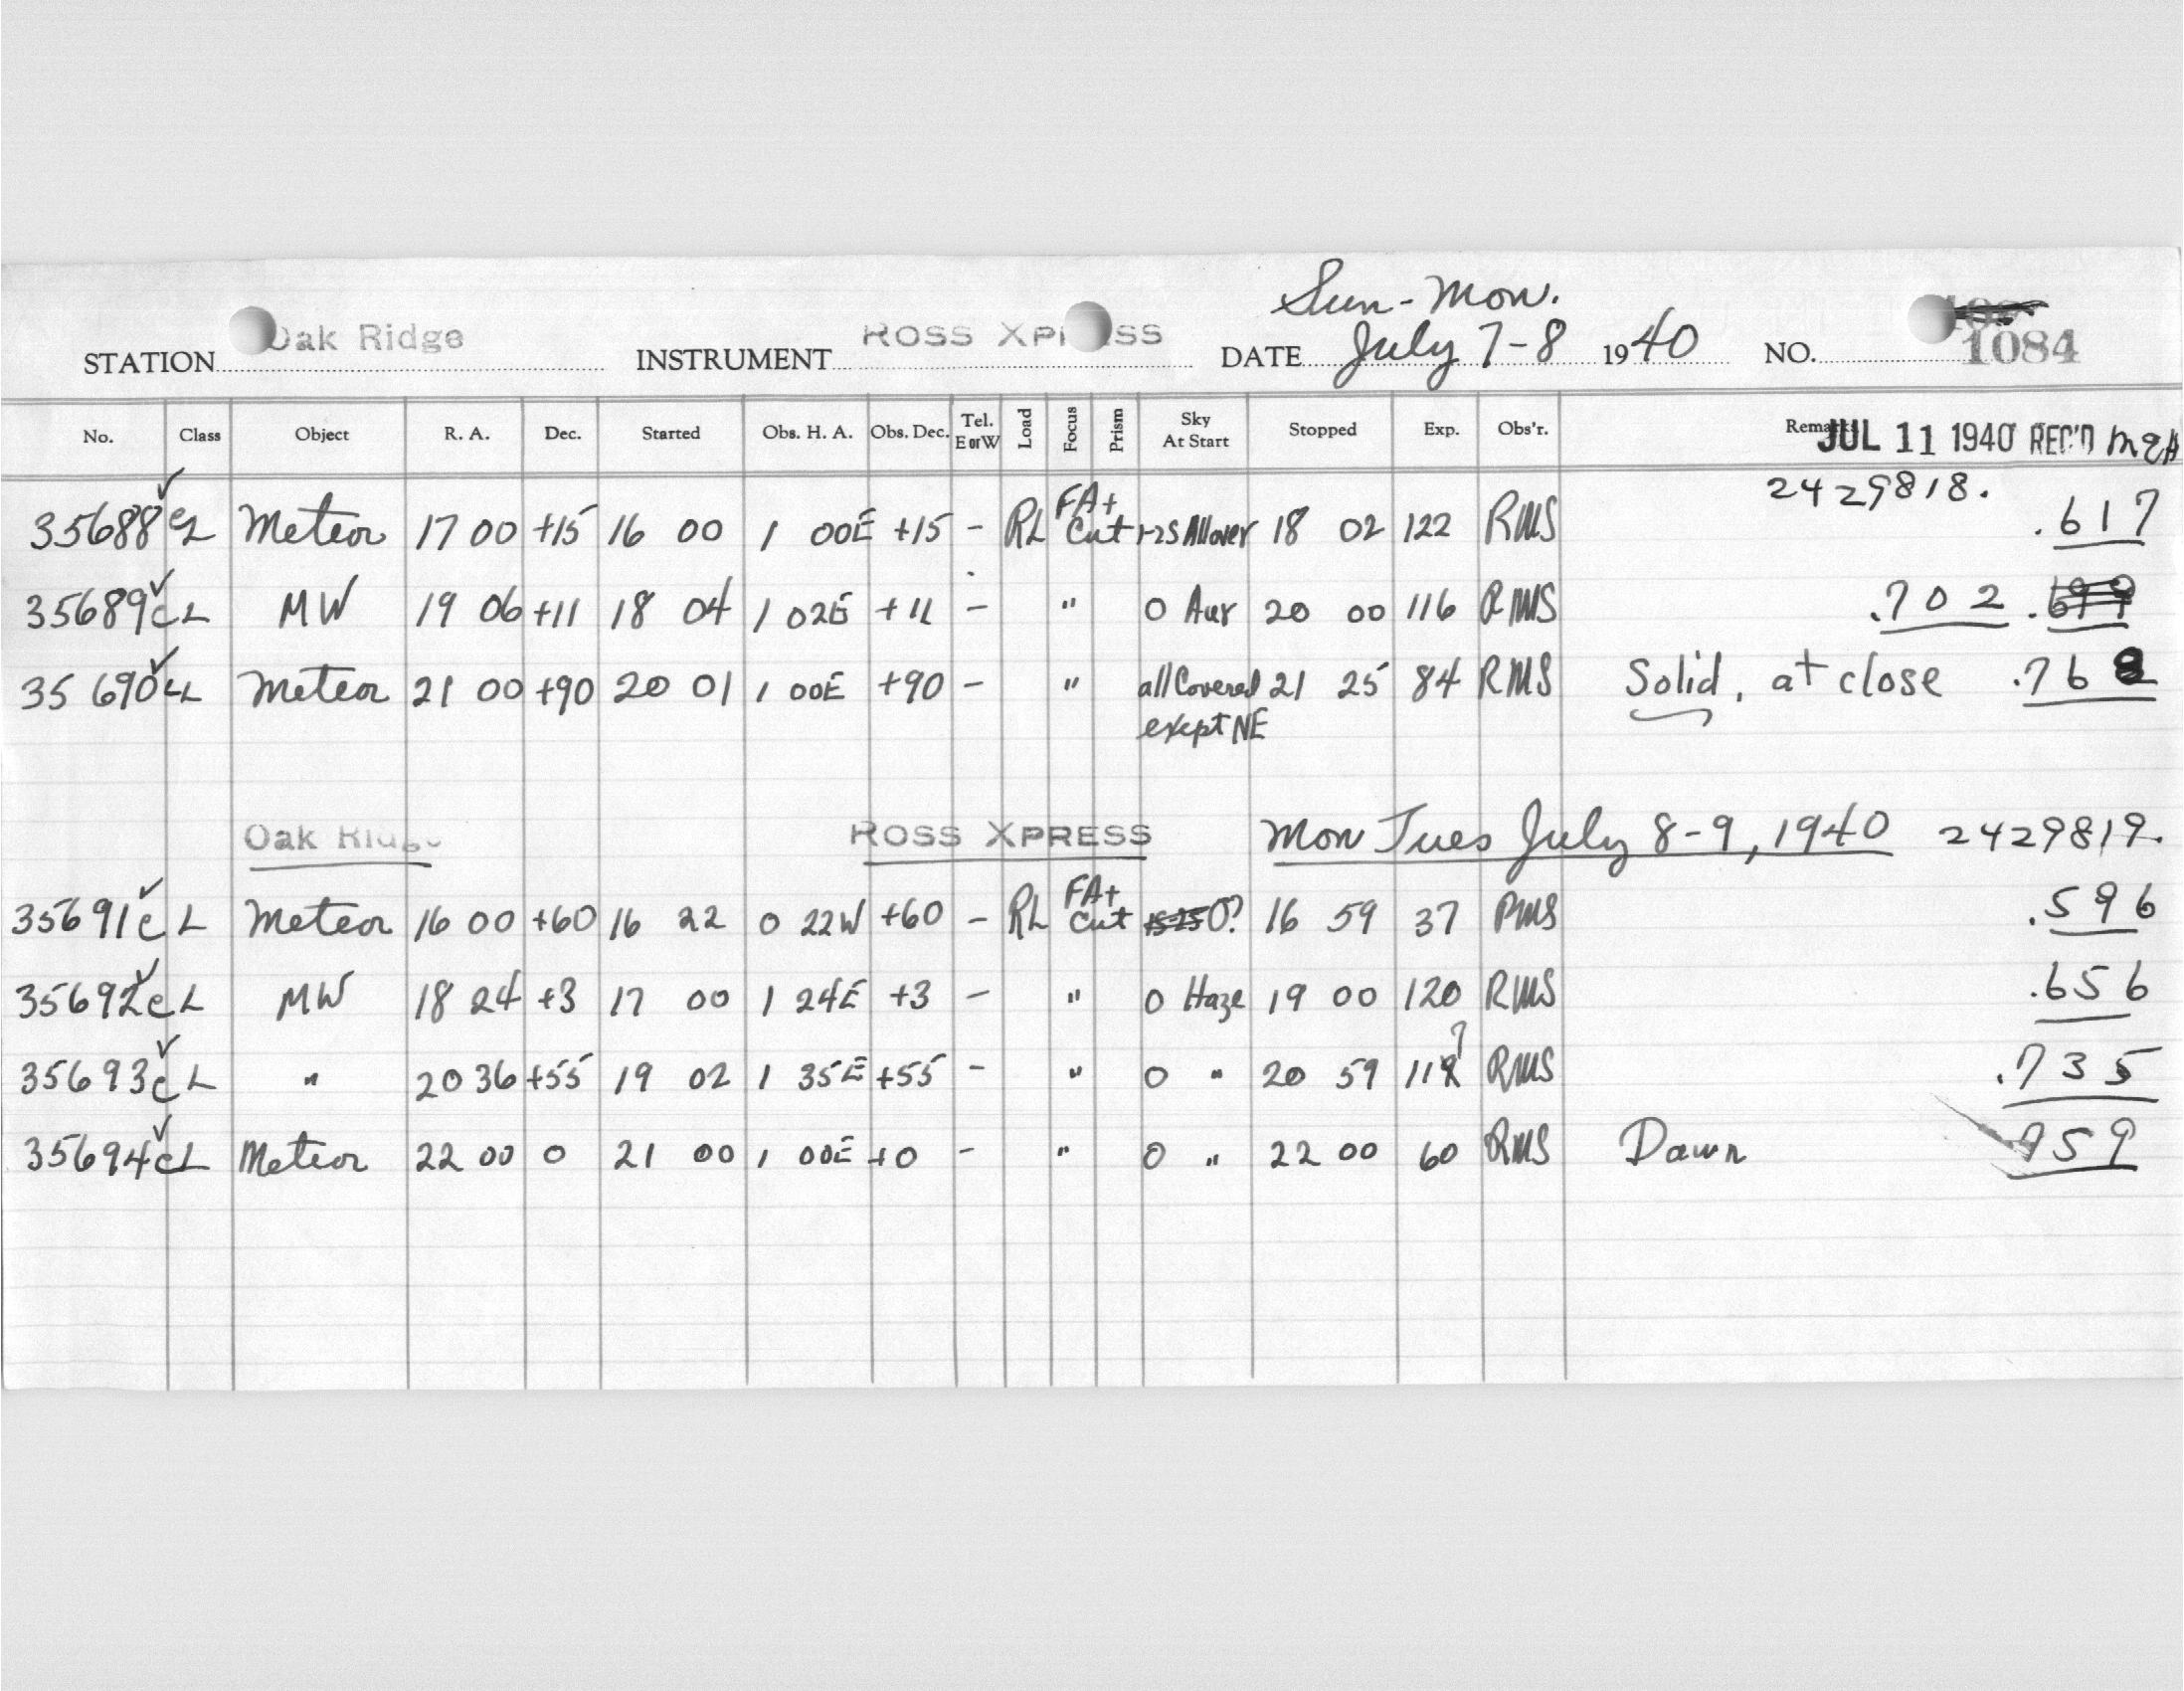 Sun-Mon.
STATION Oak Ridge INSTRUMENT ROSS XPRESS DATE July 7-8 1940 NO. 1084
No. Class Object R. A. Dec. Started Obs. H. A. Obs. Dec. Tel. E or W Load Focus Prism Sky At Start Stopped Exp. Obs'r. Remarks JUL 11 1940 REC'D
2429818.
35688 ✓ c L Meteor 17 00 +15 16 00 1 00E +15 - RL FA+ Cut 1-2S Allover 18 02 122 RMS .617
35689 ✓ c L MW 19 06 +11 18 04 1 02E +11 - " 0 Aur 20 00 116 RMS .702 .699
35690 ✓ c L Meteor 21 00 +90 20 01 1 00E +90 - " all Covered 21 25 84 RMS Solid, at close .768
exept NE
Oak Ridge ROSS XPRESS Mon Tues July 8-9, 1940 2429819.
35691 ✓ c L Meteor 16 00 +60 16 22 0 22W +60 - RL FA+ Cut 0? 16 59 37 RMS .596
35692 ✓ c L MW 18 24 +3 17 00 1 24E +3 - " 0 Haze 19 00 120 RMS .656
35693 ✓ c L " 20 36 +55 19 02 1 35E +55 - " 0 " 20 59 117 RMS .735
35694 ✓ c L Meteor 22 00 0 21 00 1 00E +0 - " 0 " 22 00 60 RMS Dawn .759